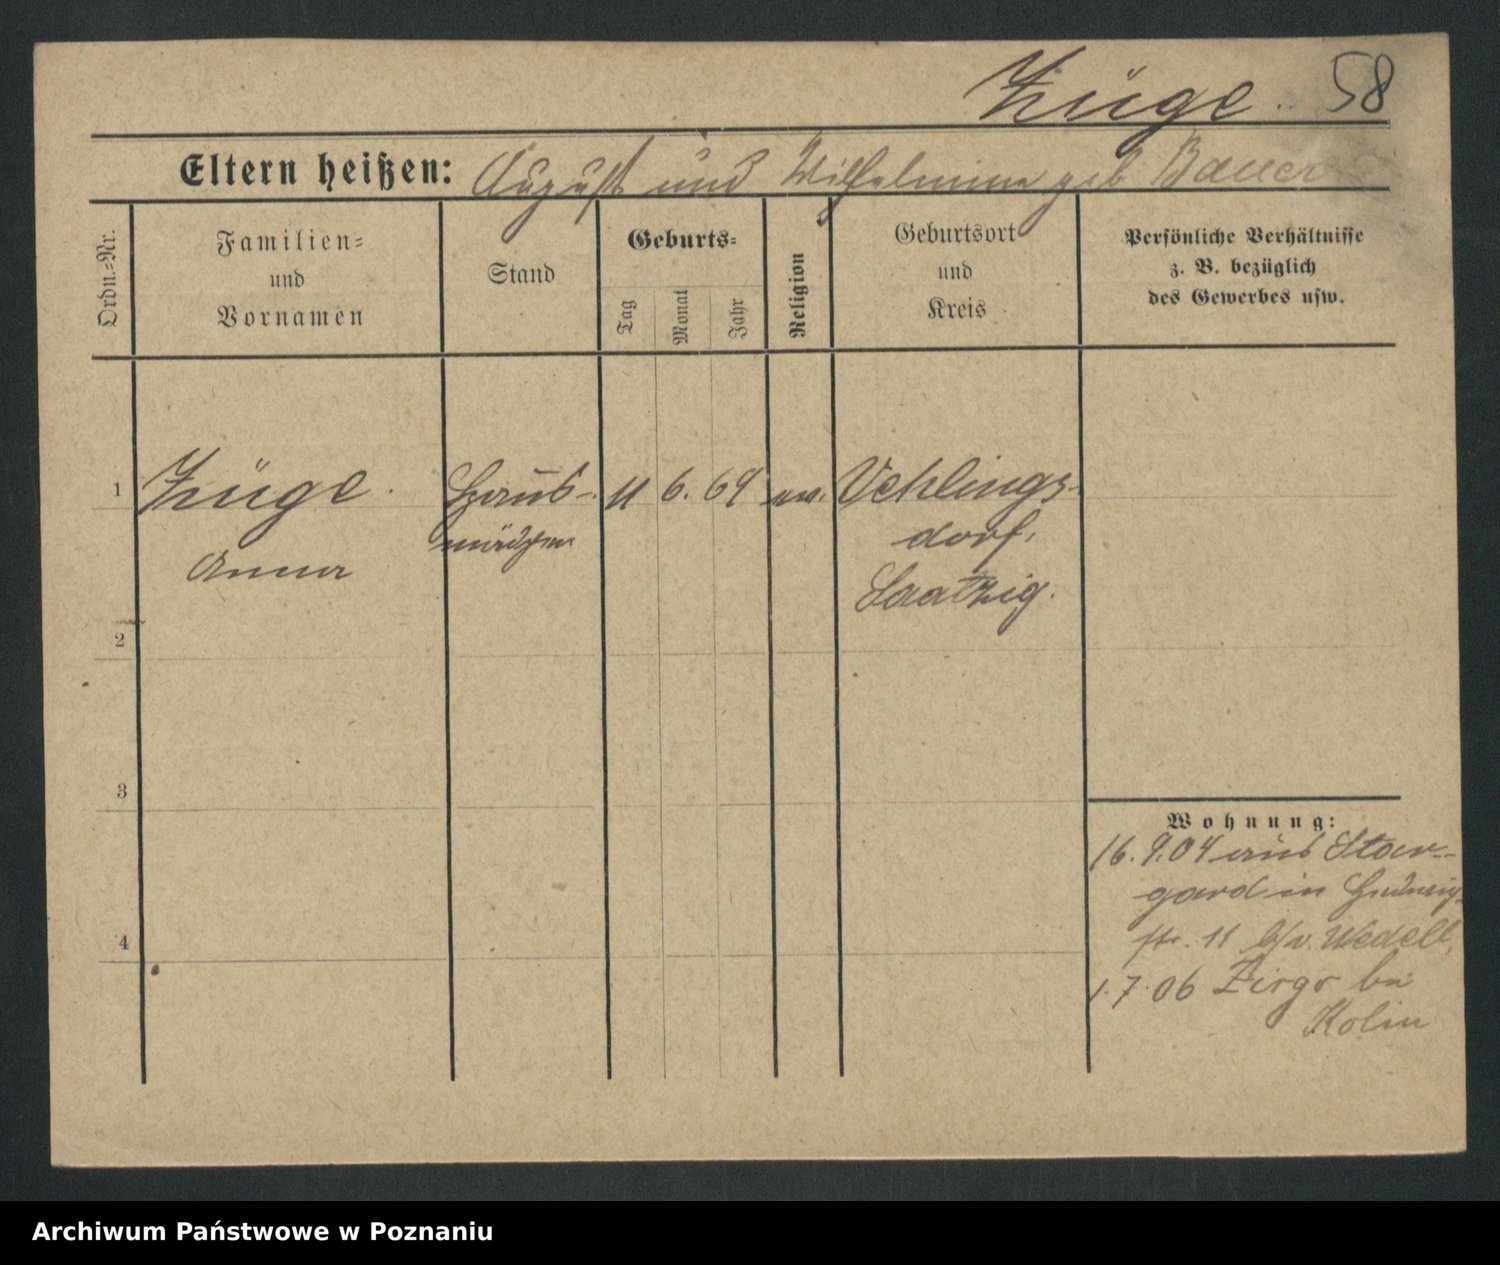 Züge. 58
Eltern heißen: August und Wilhelmine geb Bauer
Ordn.-Nr.
Familien-
und
Vornamen
Stand
Geburts-
Tag
Monat
Jahr
Religion
Geburtsort
und
Kreis
Persönliche Verhältnisse
z. B. bezüglich
des Gewerbes usw.
1 Züge. Haus- 11 6. 69 ev. Vehlings-
mädchen dorf,
Anna Saatzig.
2
3
4
Wohnung:
16. 9. 04 aus Star-
gard in Hedwig-
str. 11 b/v. Wedell,
1. 7. 06 bei
Kolin